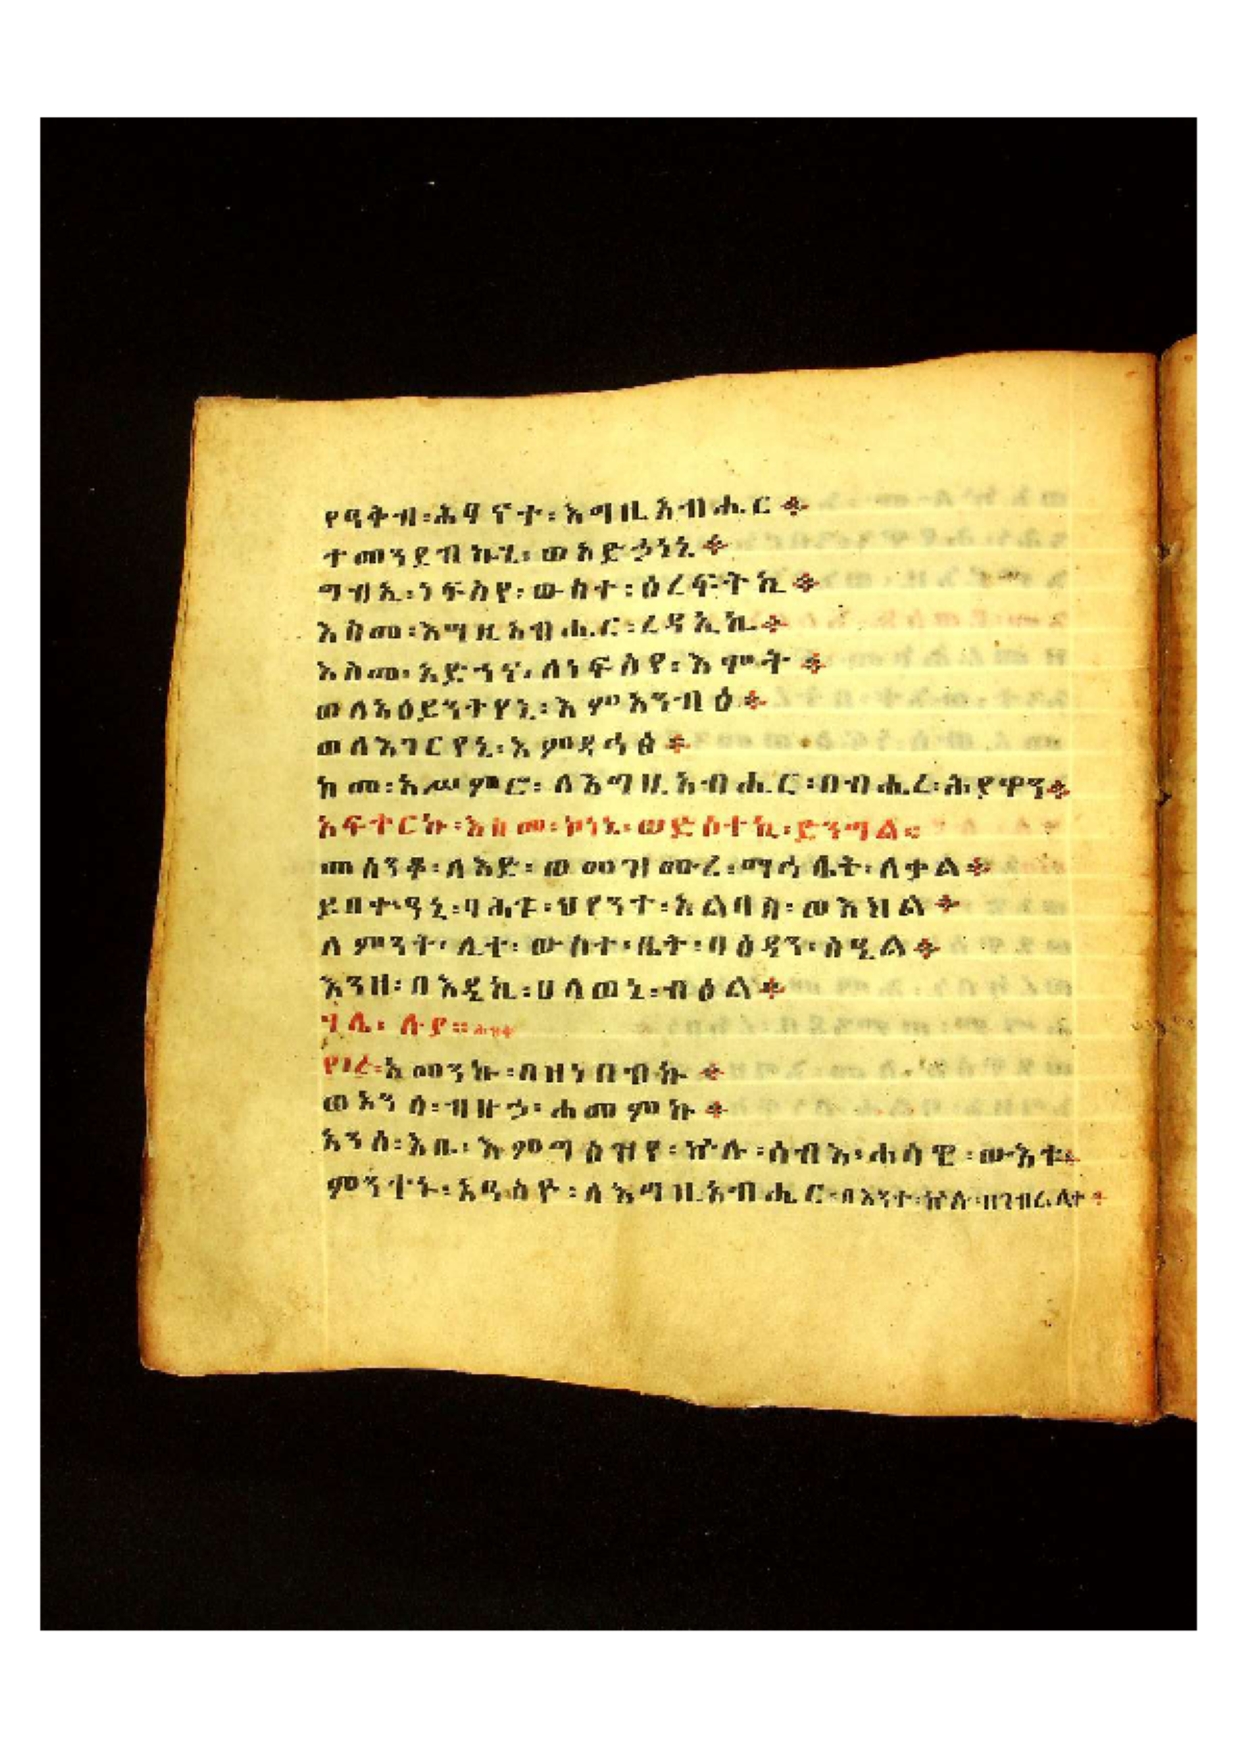 የዓቅብ፡ሕፃናተ፡እግዚአብሔር፨
ተመንደብኩሂ፡ወአድኃነኒ፨
ግብኢ፡ነፍስየ፡ውስተ፡ዕረፍትኪ፨
እስመ፡እግዚአብሔር፡ረዳኢኪ፨
እስመ፡አድኀና፡ለነፍስየ፡እሞት፨
ወለአዕይንትየኒ፡እምአንብዕ፨
ወለእገርየኒ፡እምዳኅፅ፨
ከመ፡አሥምሮ፡ለእግዚአብሔር፡በብሔረ፡ሕያዋን፨
አፍተርኩ፡እስመ፡ኮነኒ፡ወድስተኪ፡ድንግል፨
መሰንቆ፡ለእድ፡ወመዝሙረ፡ማኅሌት፡ለቃል፨
ይበተዓኒ፡ባሕቱ፡ህየንተ፡አልባስ፡ወእክል፨
ለምንት፡ሊተ፡ውስተ፡ቤት፡ባዕዳን፡ስዒል፨
እንዘ፡በእዲኪ፡ሀለወኒ፡ብዕል፨
ሃሌ፡ሉያ።
የነረ፡አመንኩ፡በዘነበብኩ፨
ወአንሰ፡ብዙኃ፡ሐመምኩ፨
አንሰ፡እቤ፡እምግዕዝየ፡ኵሉ፡ሰብእ፡ሐሳዊ፡ውእቱ፨
ምንተኑ፡አዓስዮ፡ለእግዚአብሔር፡በእንተ፡ኵሉ፡ዘገብረ፡ሊተ፨